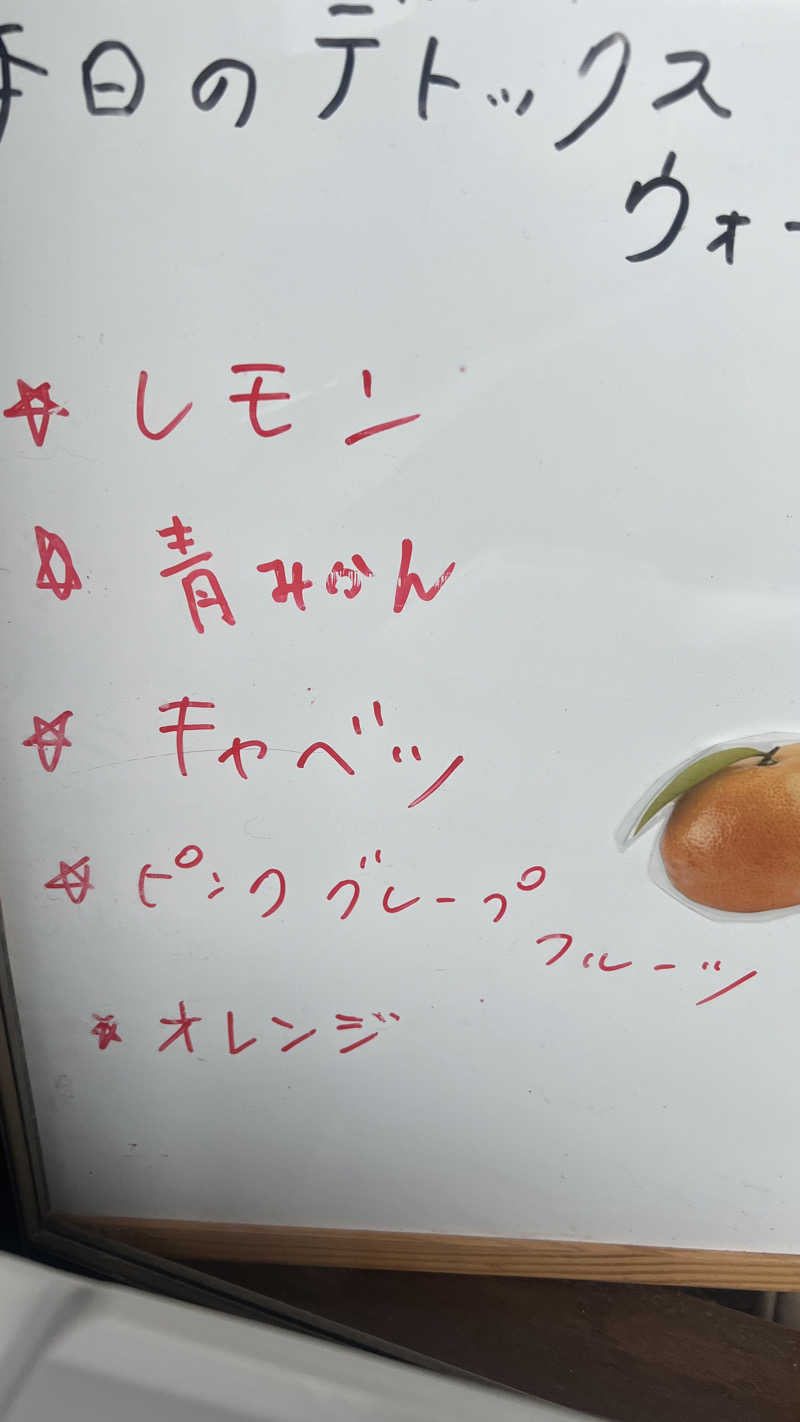 日のデトックス
ウォー
☆ レモン
☆ 青みかん
☆ キャベツ
☆ ピンクグレープ
フルーツ
☆ オレンジ